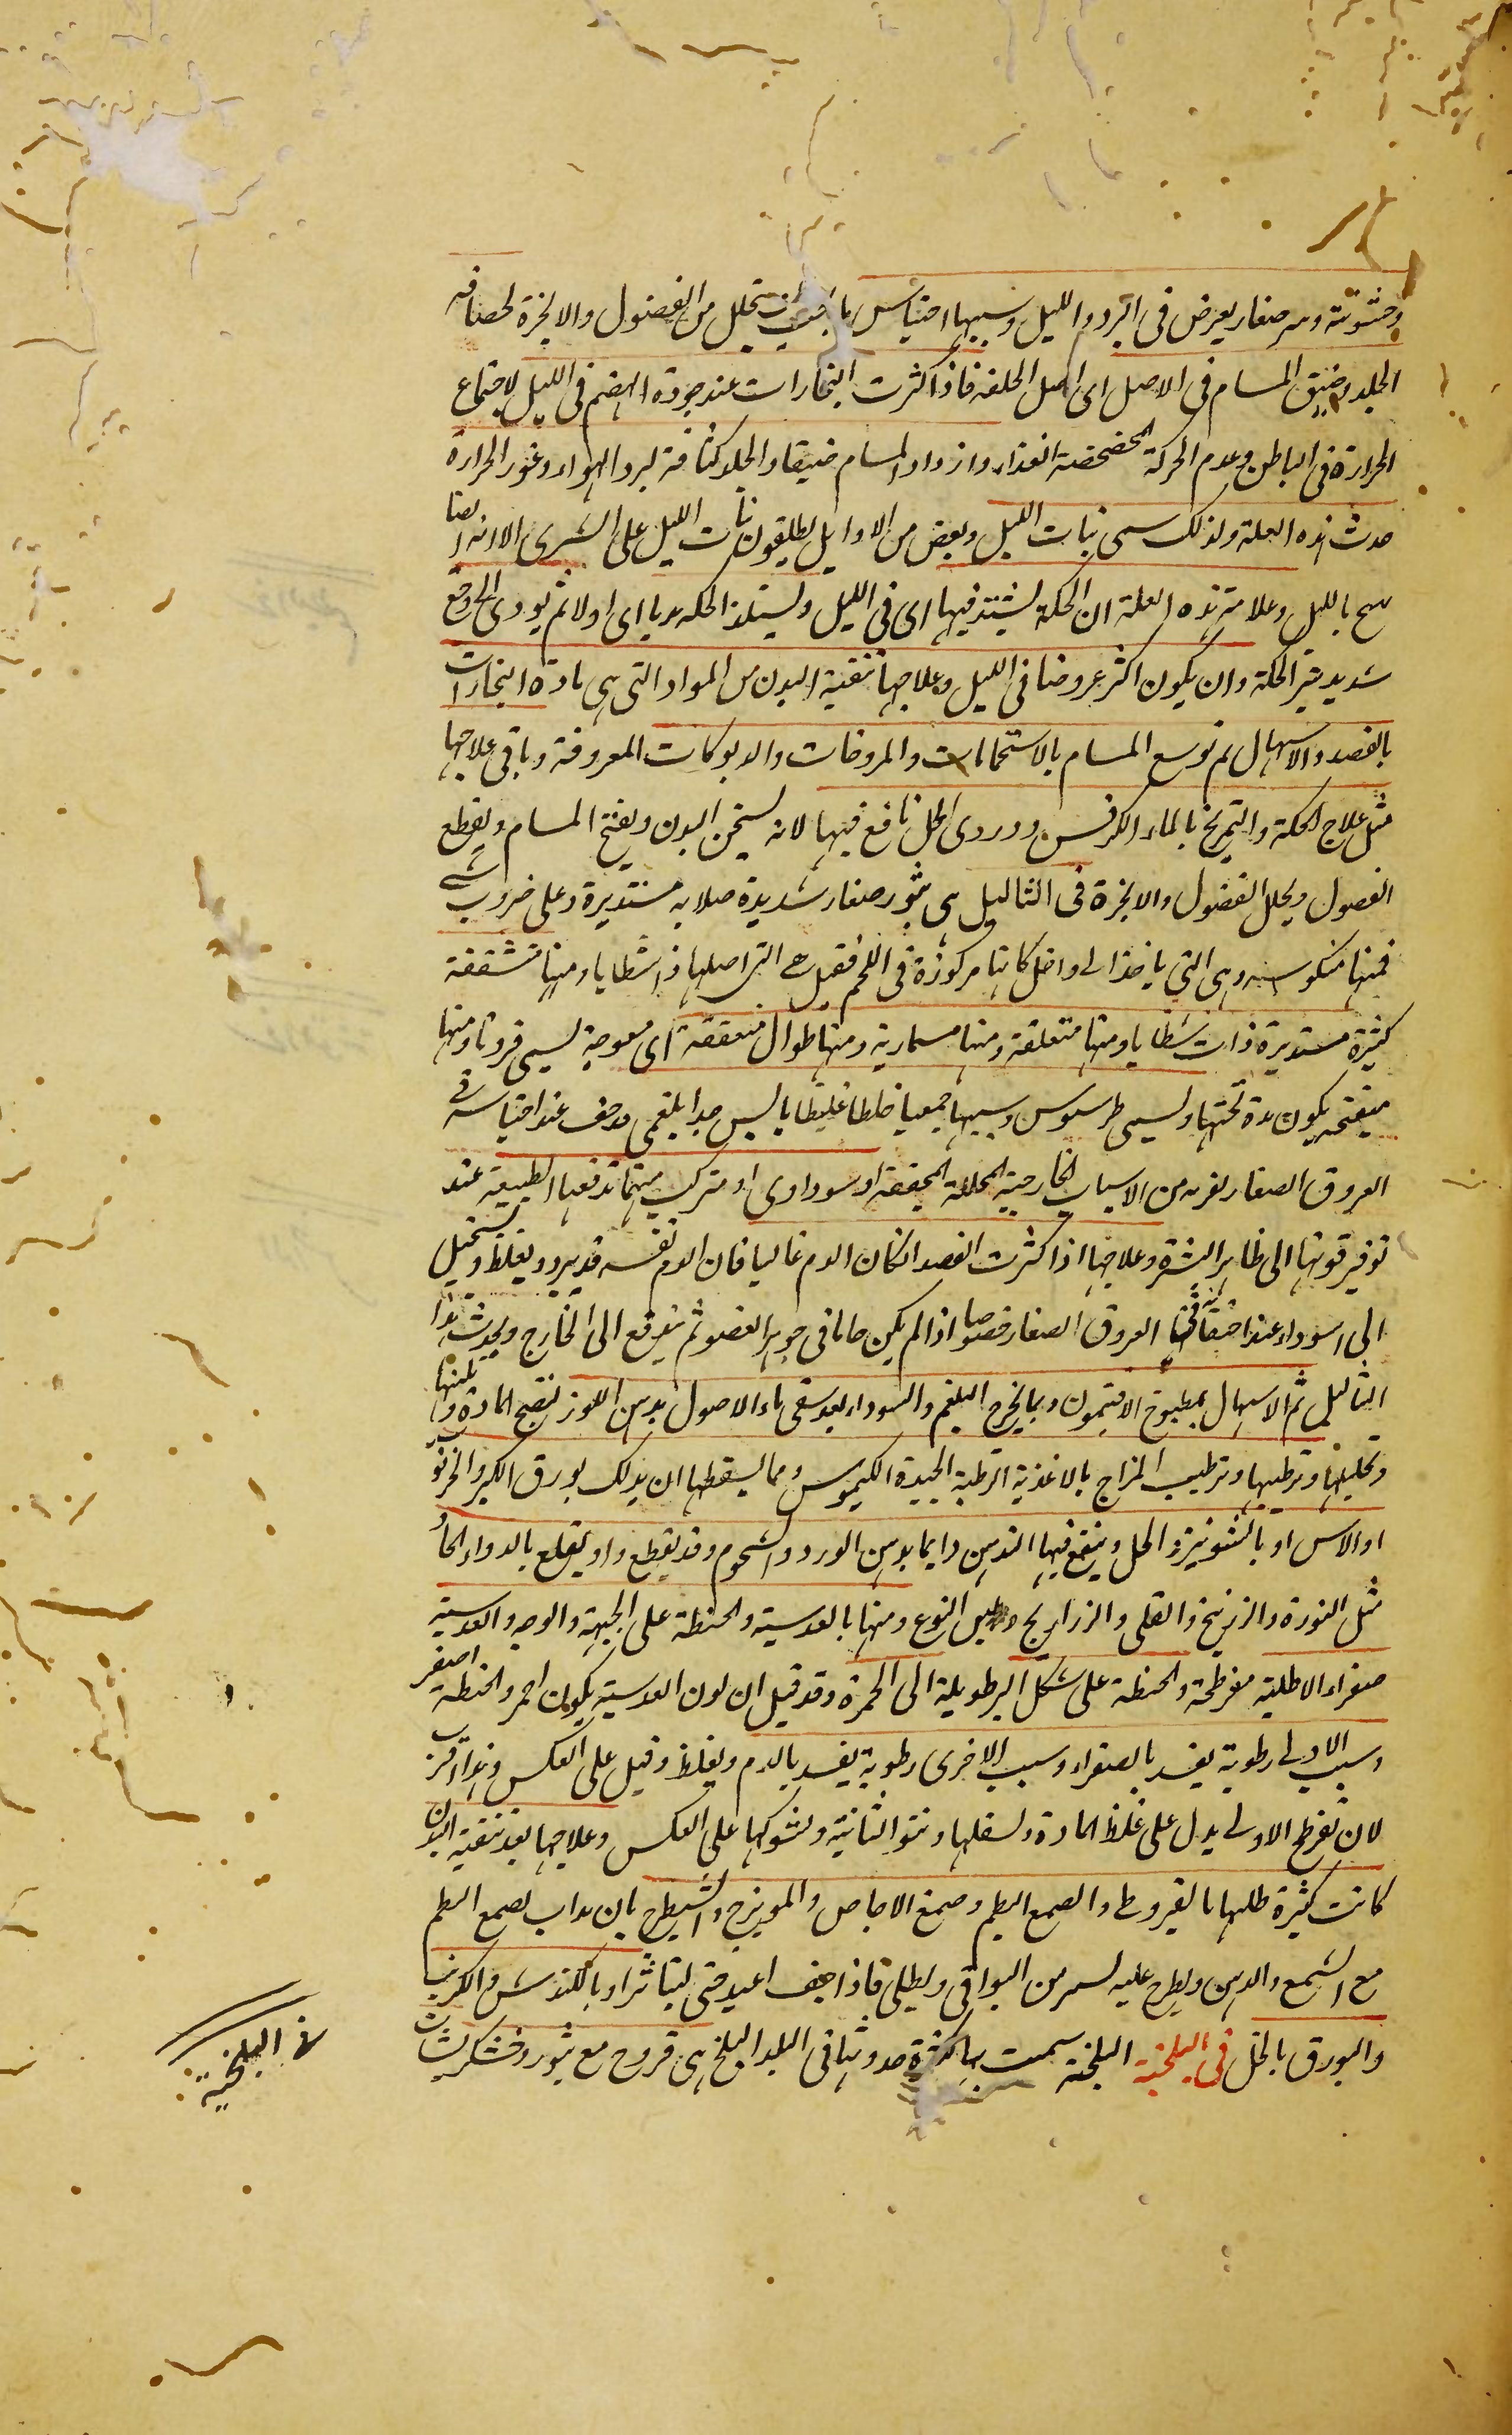 وخشونته وبثر صغار يعرض فى البرد والليل وسببها احتباس ما يجب ان يتحلل من الفضول والابخرة لحصافه
الجلد وضيق المسام فى الاصل اى اصل الخلقه فاذا كثرت البخارات عند جودة الهضم فى الليل لاجتماع
الحرارة فى الباطن وعدم الحركة المخضخضة الغذاء وازداد المسام ضيقا والجلد كثافة لبرد الهواء وغور الحرارة
حدث هذه العلة ولذلك سمى بنات الليل وبعض من الاوايل يطلقون بنات الليل على الشرى الا انه ايضا
بالليل وعلامة هذه العلة ان الحكة يشتد فيها اى فى الليل ويستلذ الحكه بديا اى اولا ثم يودى الى وجع
شديد الحكة وان يكون اكثر عروضا فى الليل وعلاجها تنقية البدن من المواد التى هى مادة البخارات
بالفصد والاسهال ثم توسع المسام بالاستحمامات والمروخات والدلوكات المعروفة وباقى علاجها
مثل علاج الحكة والتمريخ بالماء الكرفس ودردى الخل نافع فيها لانه يسخن البدن ويفتح المسام ويقطع
الفضول ويحلل الفضول والابخرة فى الثاليل هى بثور صغار شديدة صلابه مستديرة وعلى ضروب شتى
فمنها منكوسه وهى التى ياخذ الى داخل كانها مركوزة فى اللحم فقيل هى التى اصلها ذا شظايا ومنها متشققة
كثيرة مستديرة ذات شظايا ومنها متعلقة ومنها مسمارية ومنها طوال متعقفة اى معوجة يسمى قرونا ومنها
متفتحة يكون مدة تحتها ويسمى طرسوس وسببها جميعا خلطا غليظا يابس جدا بلغمى يجف عند احتباسه فى
العروق الصغار لقربه من الاسباب الخارجية المحللة المجففة او سوداوى او مركب منهما تدفعها الطبيعة عند
توفير قوتها الى ظاهر البشرة وعلاجها اذا كثرت الفصد ان كان الدم غالبا فان الدم نفسه قد يبرد ويغلظ ويستحيل
الى السوداء عند اختقانه فى العروق الصغار خصوصا اذا لم يكن حالا فى جوهر العضو ثم يندفع الى الخارج ويحدث هذا
الثاليل ثم الاسهال بمطبوخ الافتيمون وبما يخرج البلغم والسوداء بعد سقى ماء الاصول بدهن اللوز لنضج المادة وتلينها
وتحليلها وترطيبها وترطيب المزاج بالاغذية الرطبة الجيدة الكيموس ومما يسقطها ان يدلك بورق الكبر والخرنوب
او الاس او بالشونيز والخل وينفع فيها التدهين دايما بدهن الورد والشحوم وقد يقطع او يقلع بالدواء الحاد
مثل النورة والزرنيخ والقلى والزراريح النوع ومنها بالعدسية والحنطة على الجبهة والوجه والعدسية
صفراء الاطلية مفرطحة والحنطة على شكل البر طويلة الى الحمرة وقد قيل ان لون العدسية يكون احمر والحنطة اصفر
وسبب الاولى رطوبة يفسد بالصفراء وسبب الاخرى رطوبة يفسد بالدم ويغلظ وقيل على العكس وهذا اقرب
لان تفرطح الاولى يدل على غلظ المادة وثقلها ونتو الثانية وشوكها على العكس وعلاجها بعد تنقية البدن ان
كانت كثيرة طليها بالقيروطى والصمغ البطم وصمغ الاجاص والمويزج والشيطرج بان يذاب صمغ البطم
مع الشمع والدهن ويطرح عليه يسير من البواقى ويطلى فاذا جف اعيد حتى يتناثر او بالكندش والكرنب
والبورق بالخل فى البلخية البلخية سميت بها لكثرة حدوثها فى البلد البلخ هى قروح مع بثور وخشكريشات
فى البلخية